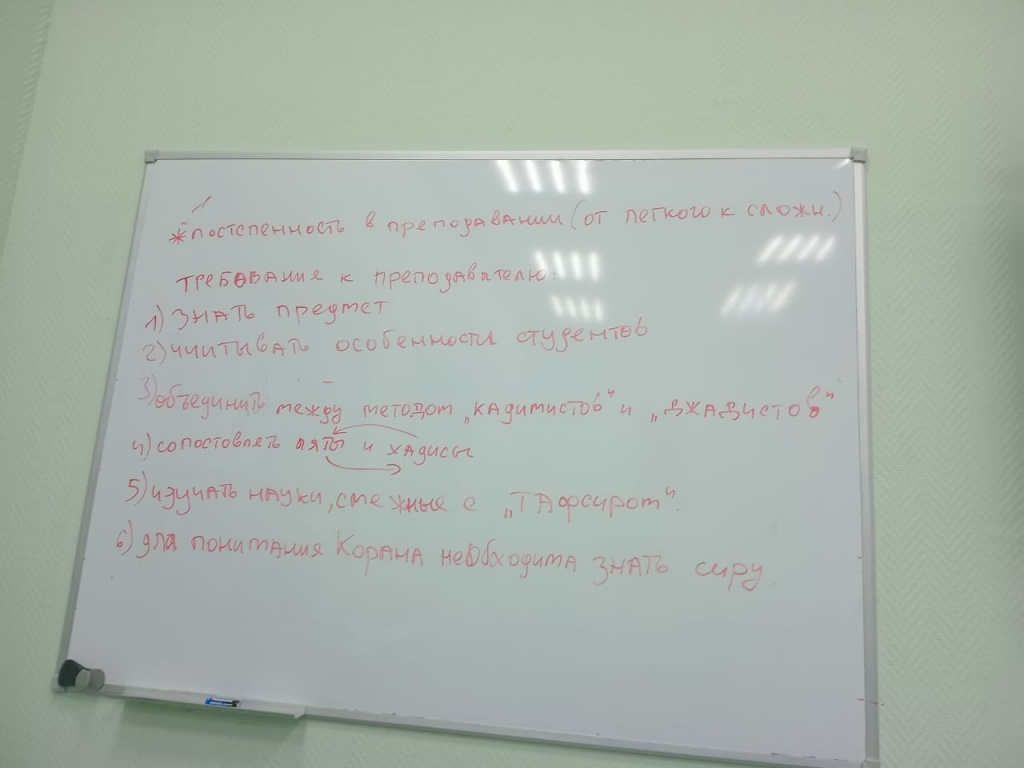 * постепенность в преподавании (от легкого к сложн.)
требование к преподавателю:
1) знать предмет
2) учитывать особенности студентов
3) объединить между методом „кадимистов" и „джадистов"
4) сопостовлять аяты и хадисы
5) изучать науки, смежные с „Тафсиром".
6) для понимания Корана необходима знать сиру.